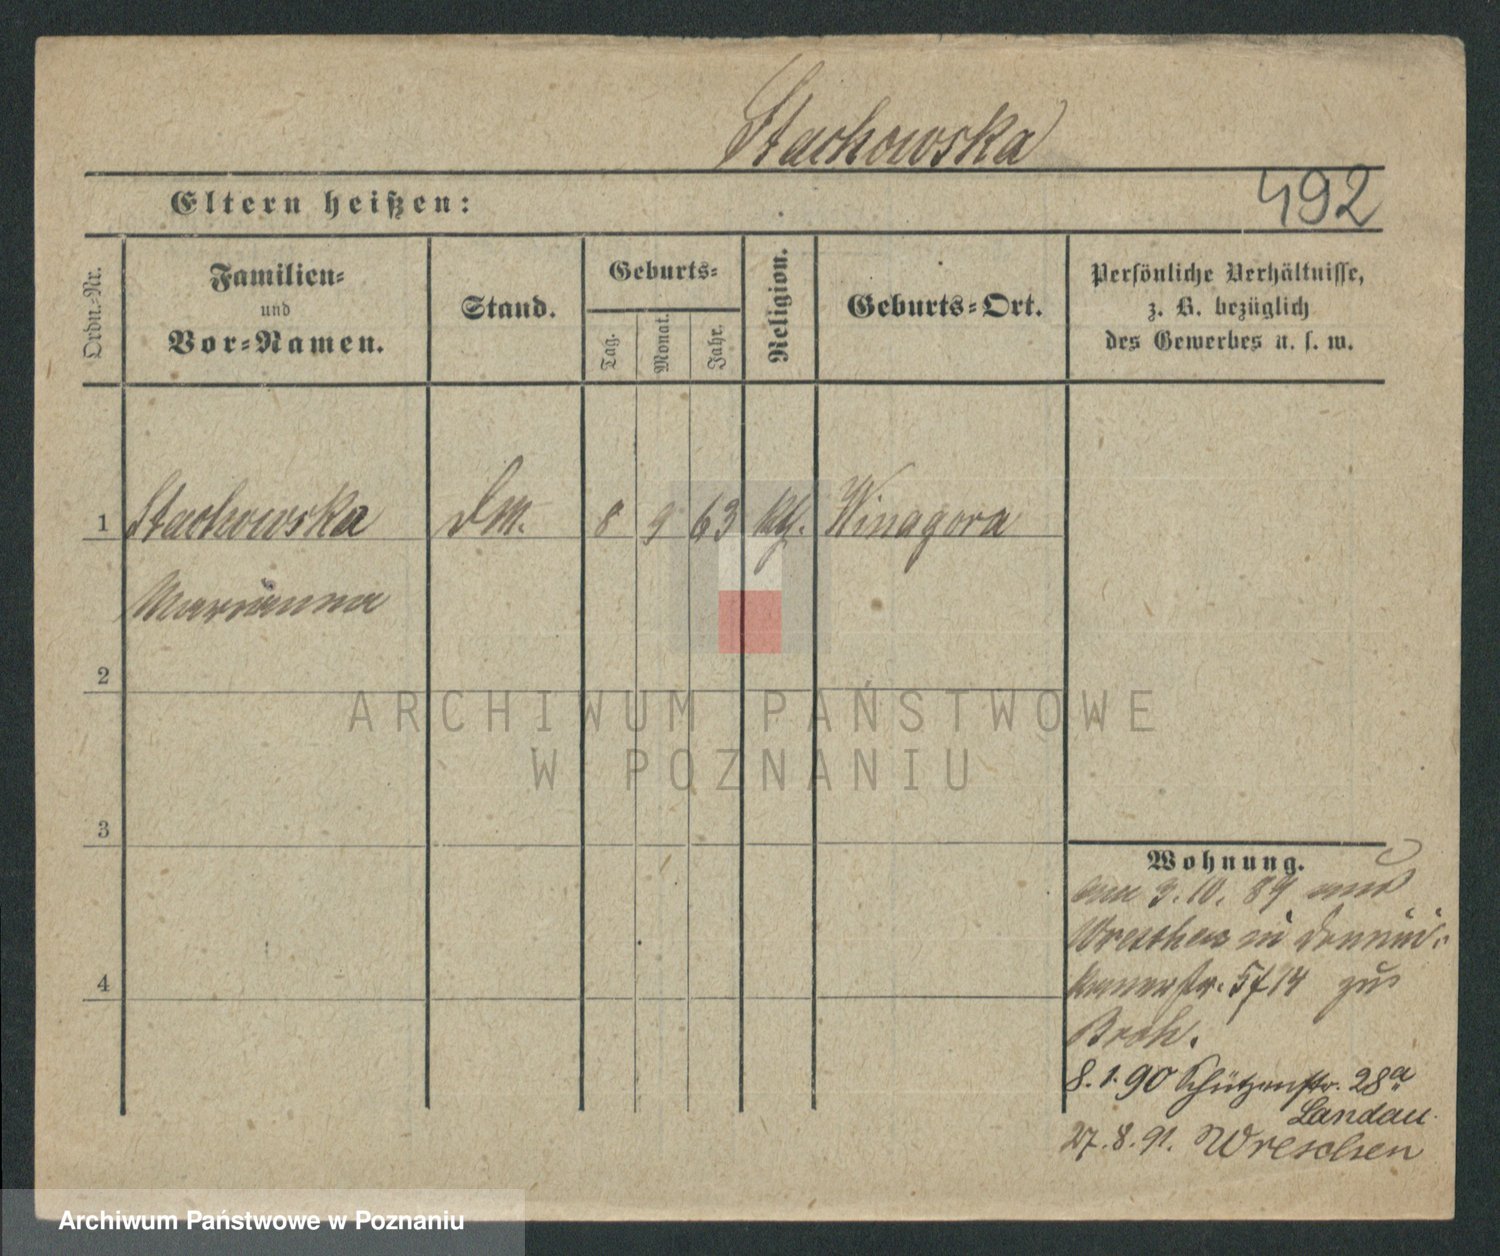 Stachowska
492
Eltern heißen:
Ordn.-Nr.
Familien-
und
Vor-Namen.
Stand.
Geburts-
Tag.
Monat.
Jahr.
Religion.
Geburts-Ort.
Persönliche Verhältnisse,
z. B. bezüglich
des Gewerbes u. s. w.
1 Stachowska DM. 8 9 63 kth. Winagora
Marianna
2
3
4
ARCHIWUM PAŃSTWOWE
W POZNANIU
Wohnung.
am 3.10.89 aus
Wreschen in Domini-
kanerstr. 5/14 zu
Broh.
8.1.90 Schützenstr. 28a
Landau
27.8.91. Wreschen
Archiwum Państwowe w Poznaniu